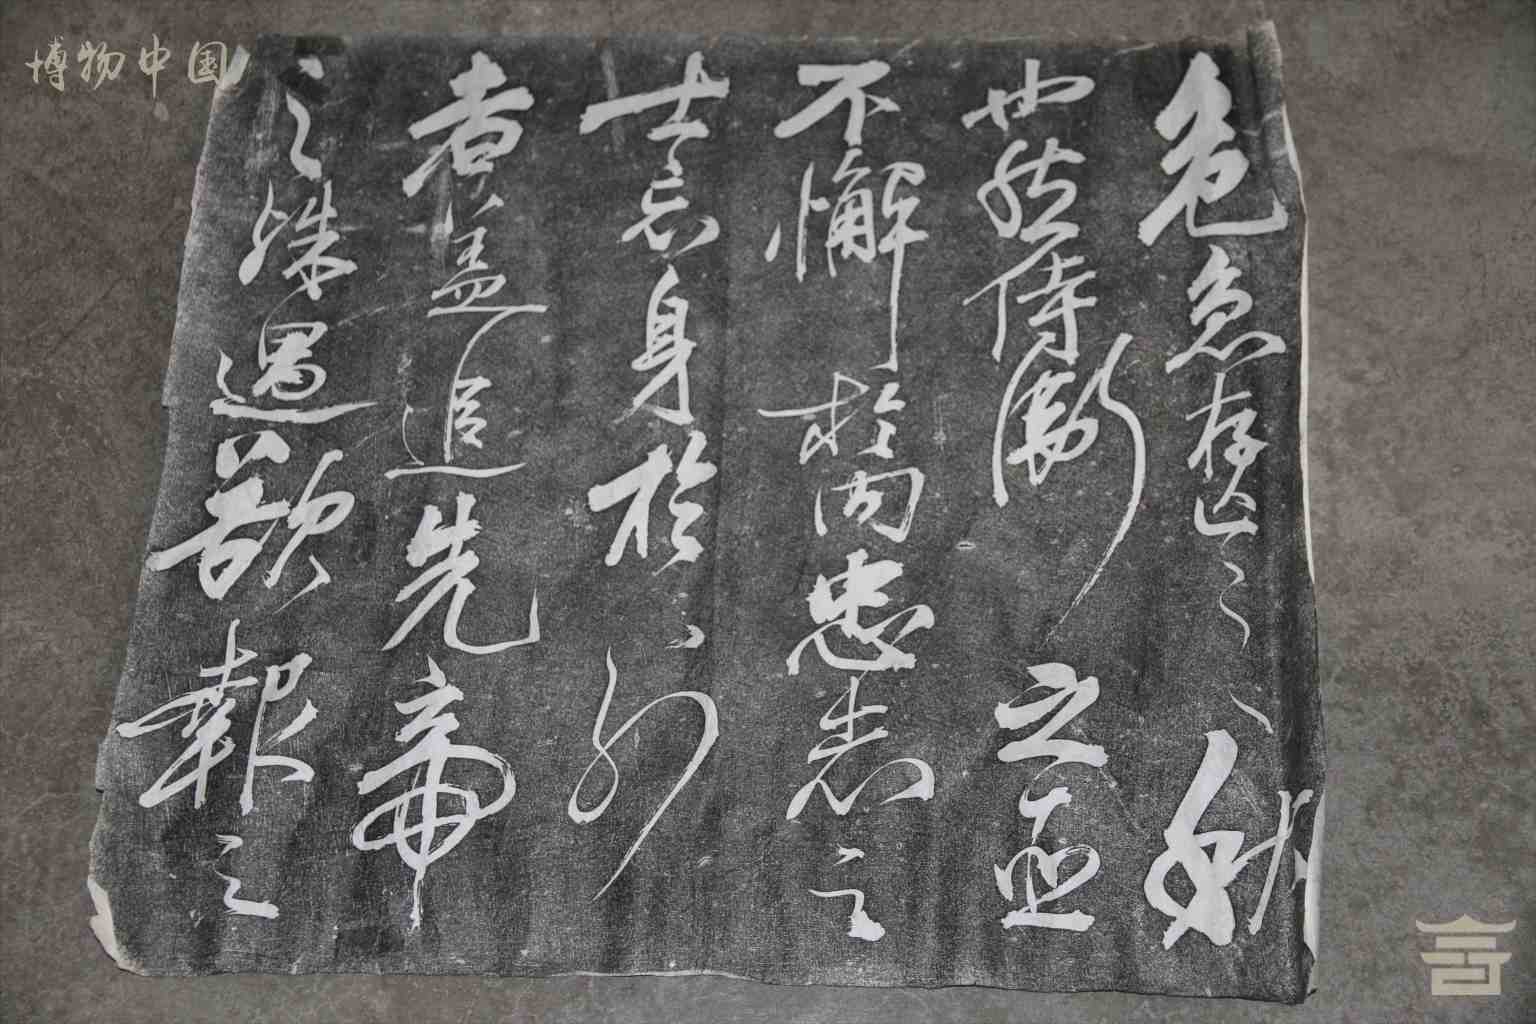 博物中国
危急存亡之秋
也然侍衛之臣
不懈於内忠志之
士忘身於外
者盖追先帝
之殊遇欲報之